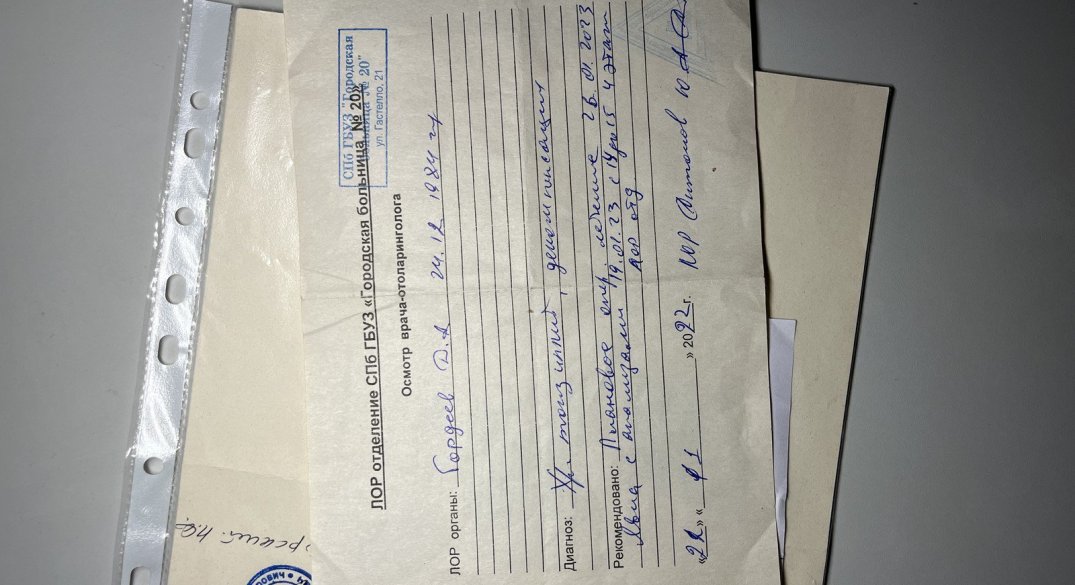 СПб ГБУЗ "Городская
больница № 20"
ул. Гастелло, 21
ЛОР отделение СПб ГБУЗ «Городская больница № 20»
Осмотр врача-отоларинголога
ЛОР органы: Гордеев Д.А 24.12 1984 гр
Диагноз: Хр. тонзиллит, декомпенсация
Рекомендовано: Плановое опер. лечение 26.01.2023
Явка с анализами 19.01.23 с 14 до 15 4 этаж
ЛОР отд
» « 01 » 2022 г. ЛОР Ю.А